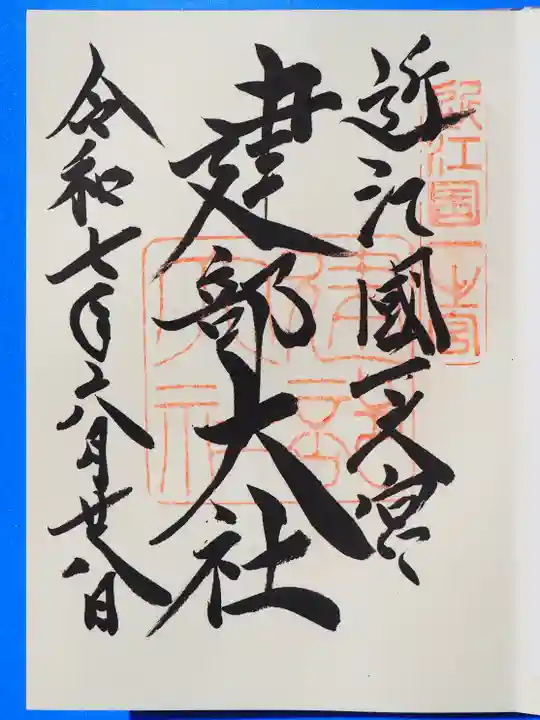 近江國一之宮
建部大社
令和七年六月廿八日
近江国一之宮
建部大社